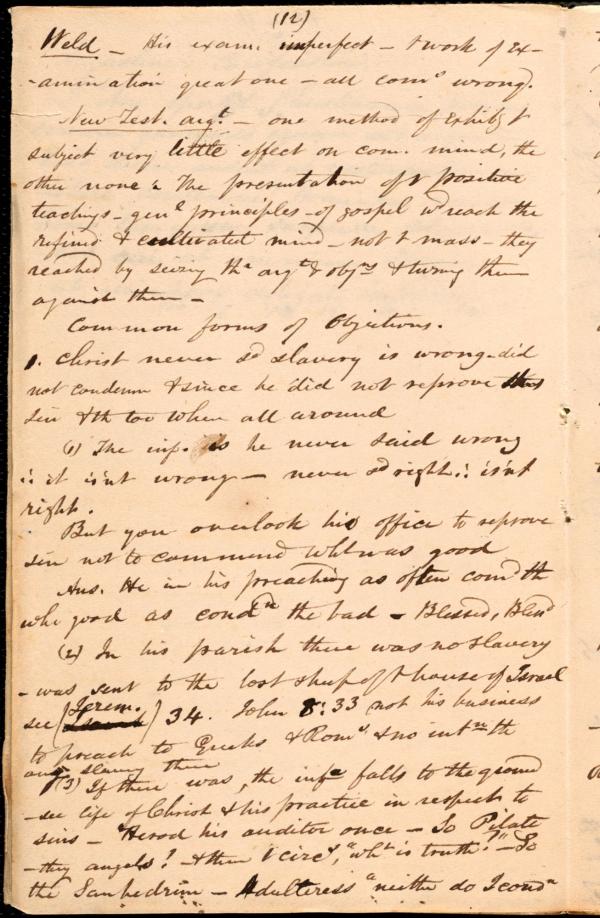 (12)
Weld - His exam. imperfect - & work of ex-
-amination great one - all comrs wrong.
New Test. argt. - one method of exhibg t
subject very little effect on com. mind, the
other none: The presentation of t positive
teachings - genl principles - of gospel wd reach the
refined & cultivated mind - not t mass - they
reached by seizing the argts & objns & turning them
against them -
Common forms of Objections.
1. Christ never sd slavery is wrong - did
not condemn & since he did not reprove this
sin & th too when all around
(1) The inf. is he never said wrong
∴ it isn't wrong - never sd right ∴ isn't
right.
But you overlook his office to reprove
sin not to commend wht was good
Ans. He in his preaching as often comd th
wh good as condn the bad - Blessed, Blesd
(2) In his parish there was no slavery
- was sent to the lost sheep of t house of Israel
see (Jerem.) 34. John 8:33 not his business
to preach to Greeks & Roms, & no intn th
any slavery there
(3) If there was, the infe falls to the ground
- see life of Christ & his practice in respect to
sins - Herod his auditor once - So Pilate
- they angels! & then t circs, "wht is truth?" - So
the Sanhedrim - Adulteress "neither do I condn